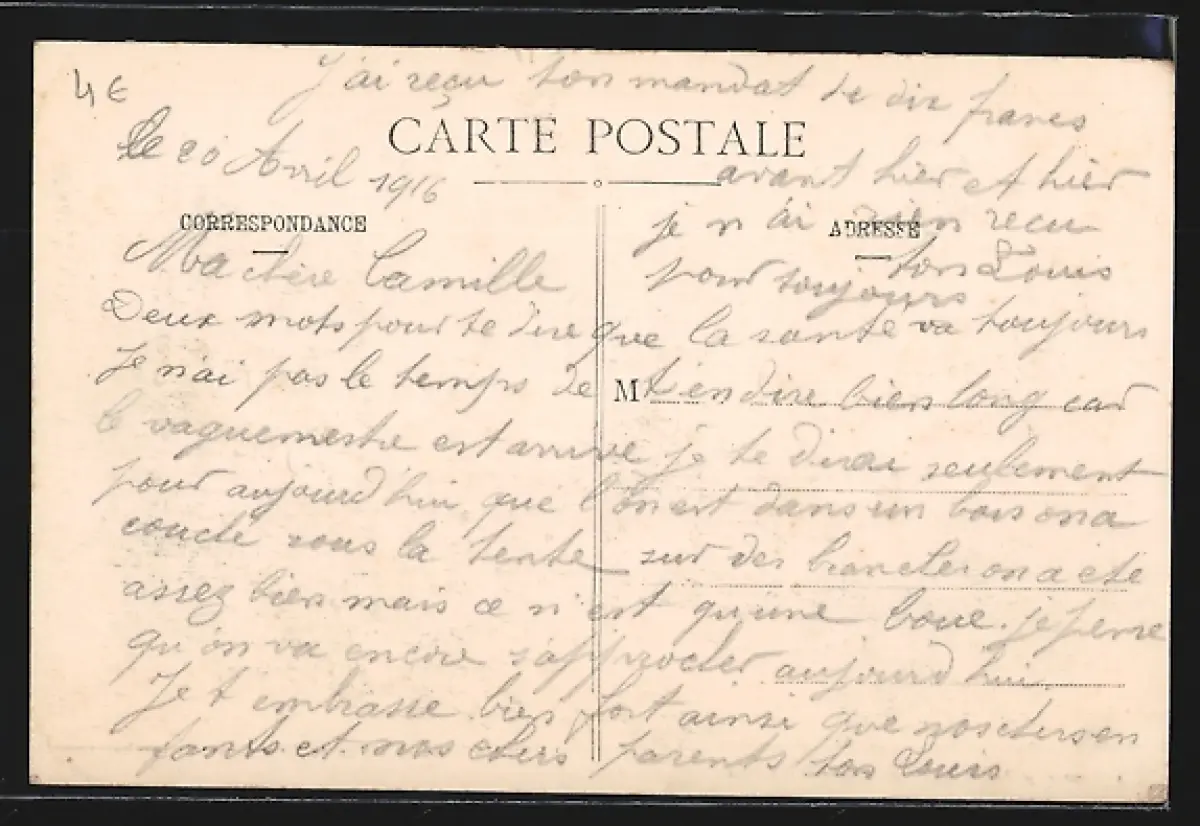 4 €
J'ai reçu ton mandat de dix francs
CARTE POSTALE
le 20 Avril 1916
avant hier et hier
CORRESPONDANCE
je n ai rien recu
ADRESSE
ton Louis
pour toujours
Ma chère Camille
Deux mots pour te dire que la santé va toujours
Je n'ai pas le temps de t en dire bien long car
M
le vaguemestre est arrivé je te dirai seulement
pour aujourd hui que l on est dans un bois on a
couché sous la tente sur des branches on a été
assez bien mais ce n'est qu'une boue. je pense
qu'on va encore s'approcher aujourd hui.
Je t embrasse bien fort ainsi que nos chers en
fants et nos chers parents ton Louis